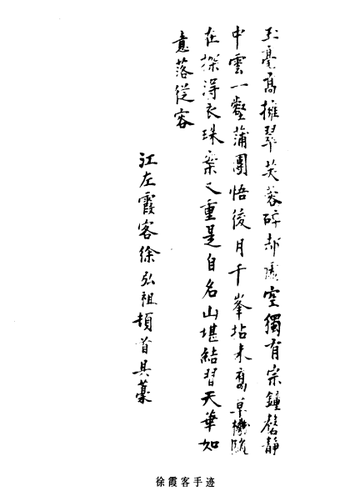 玉毫高擁翠芙蓉碎却虛空獨有宗鐘磬靜
中雲一壑蒲團悟後月千峯拈來腐草機隨
在探得衣珠案又重是自名山堪結習天華如
意落從容
江左霞客徐弘祖頓首具藁
徐霞客手迹